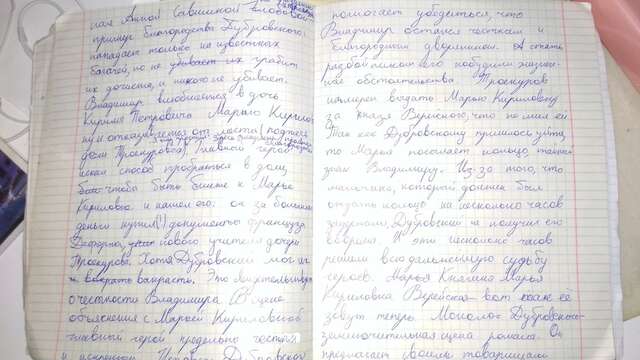 ная Анной Савишной Глобовой
пример благородства Дубровского:
нападает только на известных
богачей, но не убивает их грабит
их дочиста, и никого не убивает.
Владимир влюбляется в дочь
Кирила Петровича Марью Кирилов
ну и отказывается от мести
дом Троекурова. Главный герой
искал способ пробраться в дом,
чтобы быть ближе к Марье
Кириловне и нашел его: он за большие
деньги купил(!) документы француза
Дефоржа, нового учителя
Троекурова. Хотя Дубровский мог их
Это
о честности Владимира. В сцене
объяснения с Марьей Кириловной
главный герой предельно честен
и искренен. Дубровский
помогает убедиться, что
Владимир остался честным и
благородным дворянином. А стать
разбойником его побудили жизнен
ные обстоятельства. Троекуров
намерен выдать Марью Кириловну
за князя Верейского, что не мил ей.
Так как Дубровскому пришлось уйти,
то Марья посылает кольцо,
Владимиру. Из-за того, что
мальчика, который должен был
отдать кольцо на несколько часов
задержали, Дубровский не получил его
вовремя. И эти несколько часов
решили всю дальнейшую судьбу
героев. Марья Княгиня Марья
Кириловна Верейская - вот как её
зовут теперь. Монолог Дубровского -
заключительная сцена романа. Он
предлагает своим товарищам